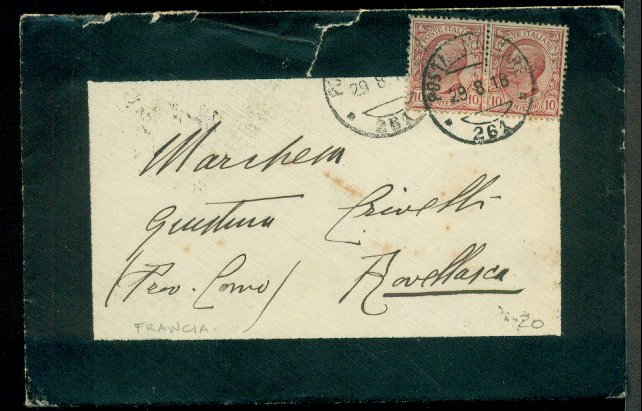 POSTE ITALIANE
10 10 10
POSTA MILITARE
29 8 18
261
29 8 1
261
Marchesa
Giustina Crivelli
(Prov. Como) Rovellasca
FRANCIA.
20